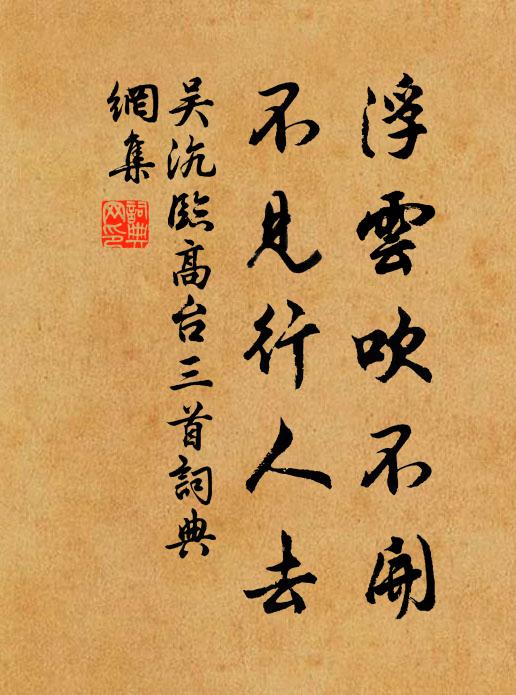 浮雲吹不開
不見行人去
吳沆臨高台三首詞典
網集
詞典
网印